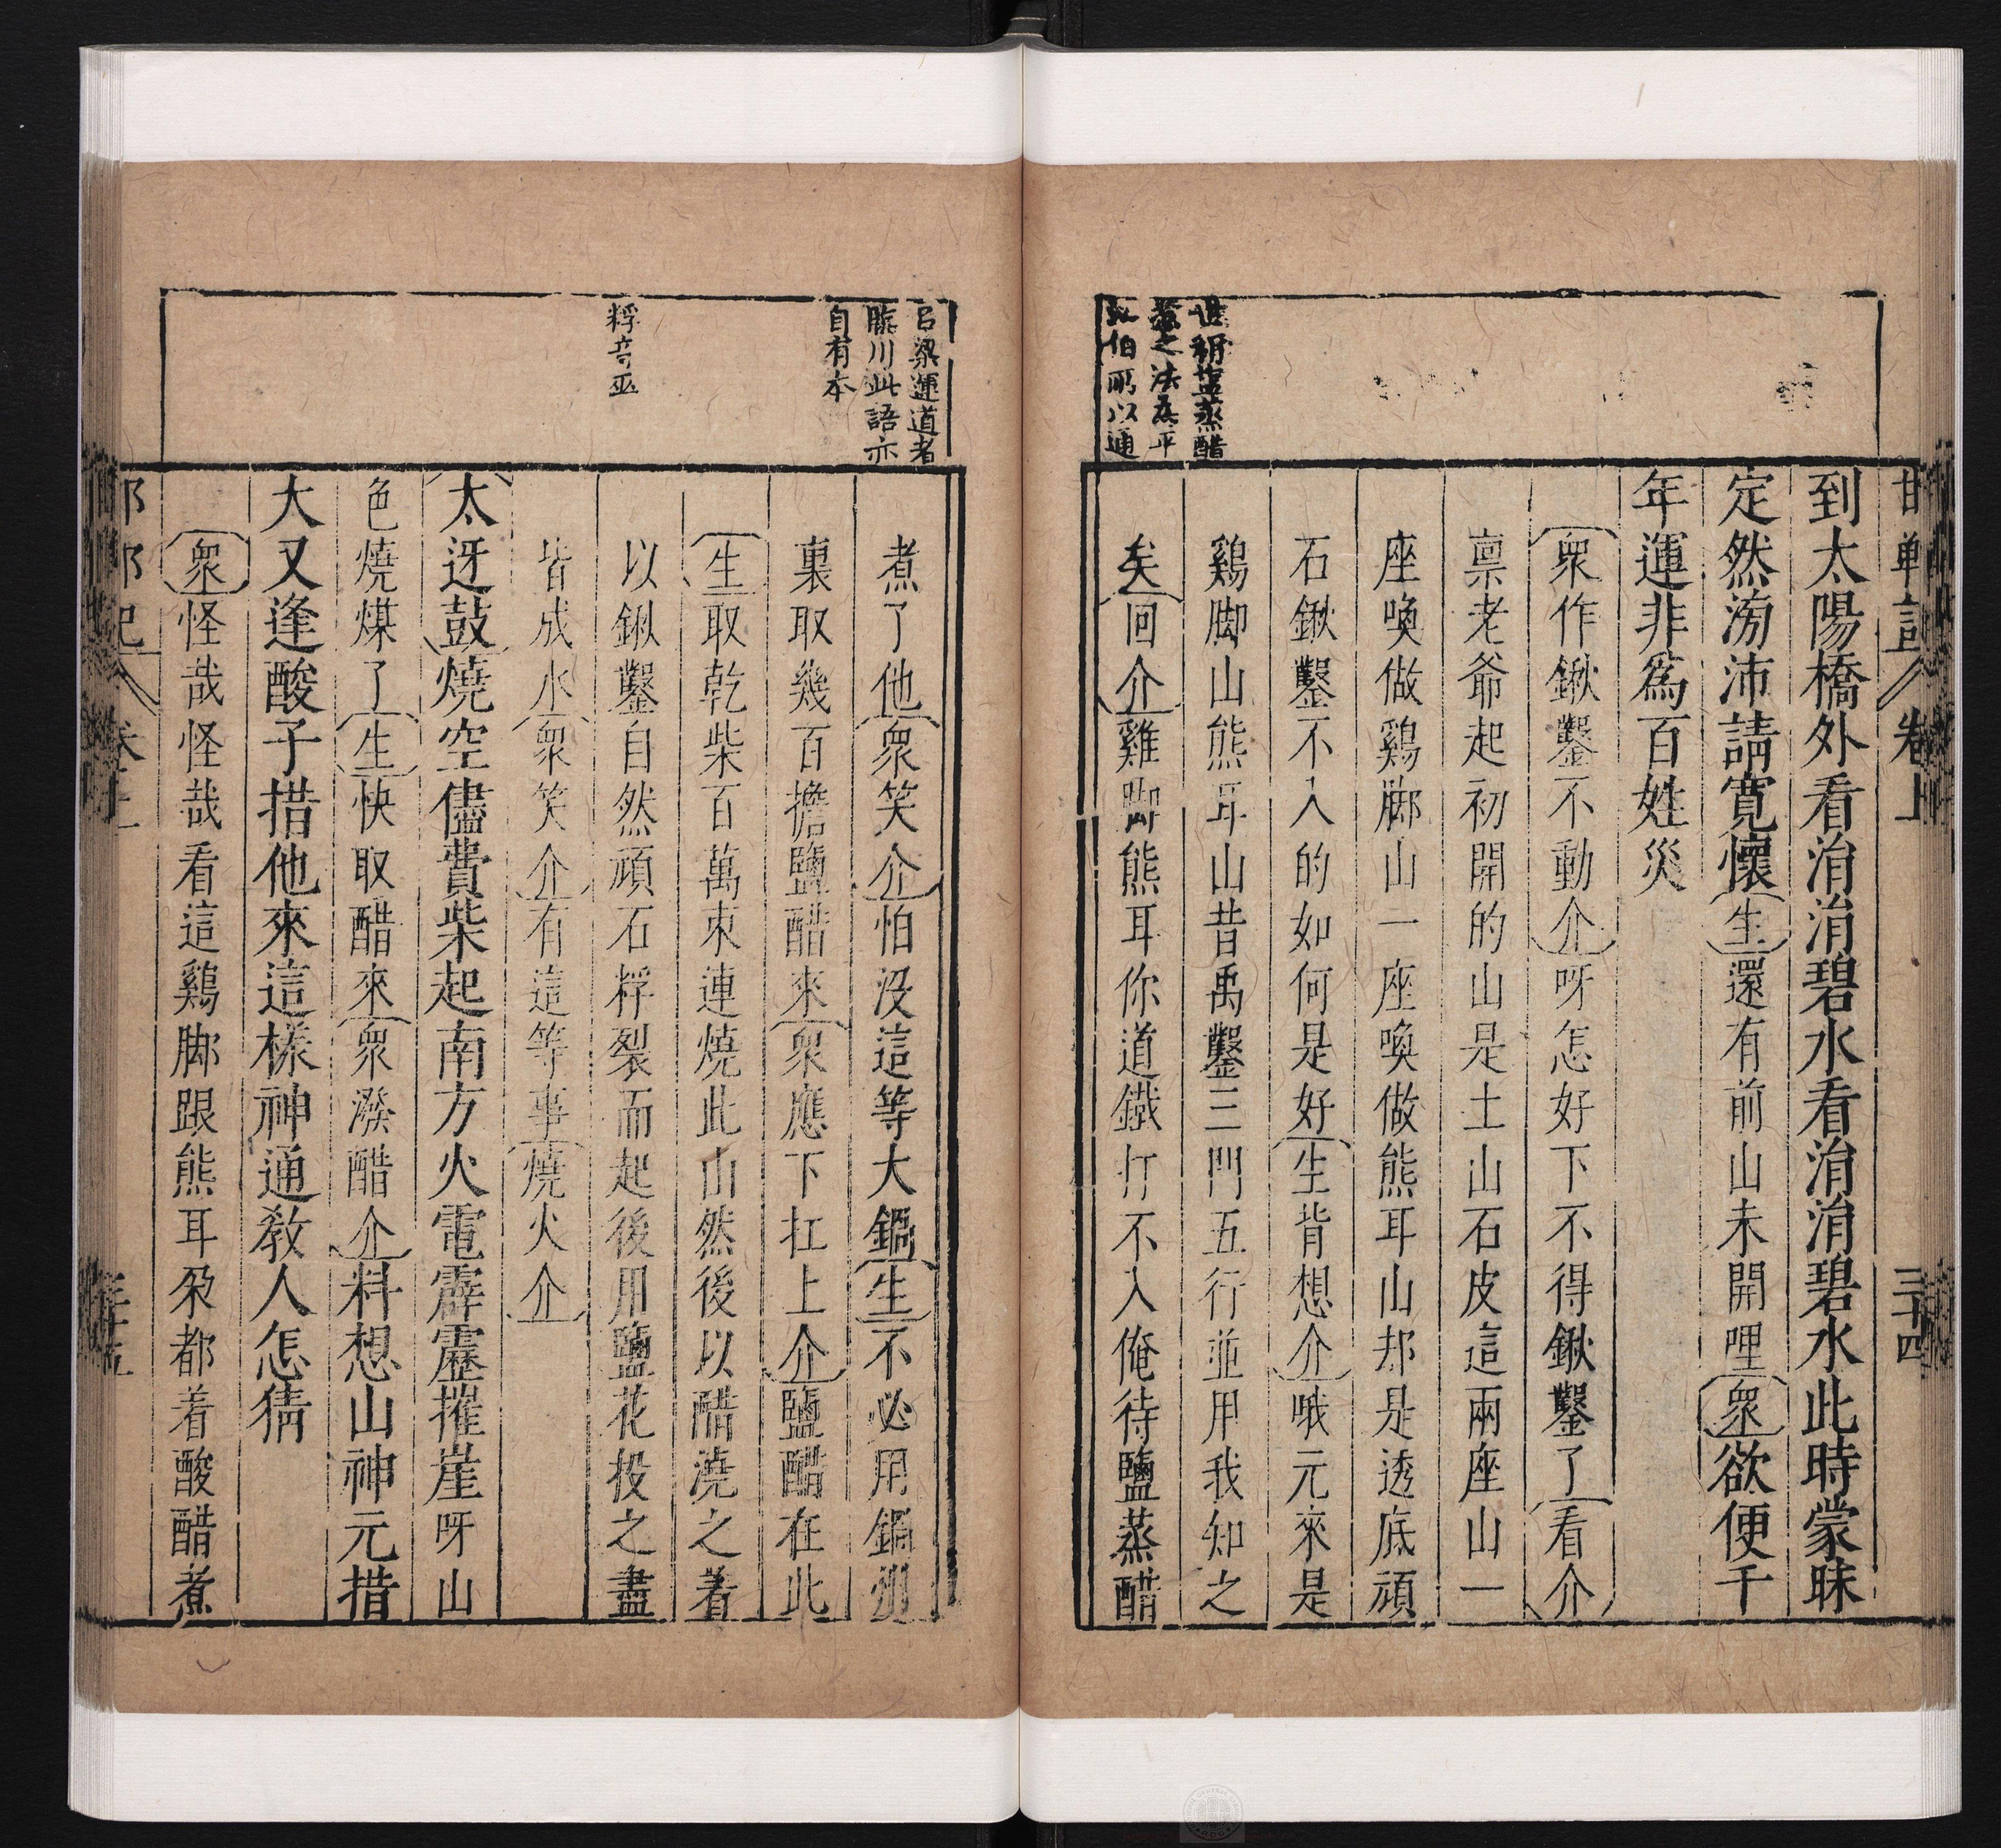 到太陽橋外看湝湝碧水看湝湝碧水此時蒙昧
定然滂沛請寬懷生還有前山未開哩衆欲便千
年運非爲百姓災
衆作鍬鑿不動介呀怎好下不得鍬鑿了看介
禀老爺起初開的山是土山石皮這兩座山一
座喚做鷄脚山一座喚做熊耳山却是透底頑
石鍬鑿不入的如何是好生背想介哦元來是
鷄脚山熊耳山昔禹鑿三門五行並用我知之
矣回介雞脚熊耳你道鐵打不入俺待鹽蒸醋
世稱塩蒸醋
煮之法爲平
伯所以通
卷上
三十四
煮了他衆笑介怕没這等大鍋生不必用鍋州
裏取幾百擔鹽醋來衆應下扛上介鹽醋在此
生取乾柴百萬束連燒此山然後以醋澆之着
以鍬鑿自然頑石稃裂而起後用鹽花投之盡
皆成水衆笑介有這等事燒火介
太迓鼓燒空儘費柴起南方火電霹靂摧崖呀山
色燒煤了生快取醋來衆潑醋介料想山神元措
大又逢酸子措他來這樣神通教人怎猜
衆怪哉怪哉看這鷄脚跟熊耳朶都着酸醋煮
吕梁運道者
臨川此語亦
自有本
稃音巫